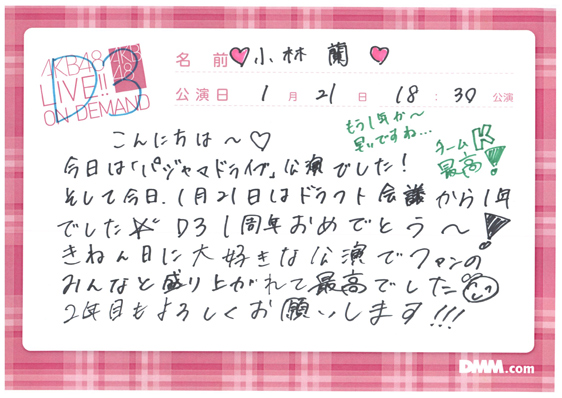 AKB48
LIVE!!
ON DEMAND
AKB
48
D3
名前 ♥小林 蘭♥
公演日 1月21日 18:30公演
もう1年か〜
早いですね…
チームK
最高!
こんにちは〜♡
今日は「パジャマドライブ」公演でした!
そして今日、1月21日はドラフト会議から1年
でした☆ D3 1周年おめでとう〜!
きねん日に大好きな公演でファンの
みんなと盛り上がれて最高でした
2年目もよろしくお願いします!!!
DMM.com